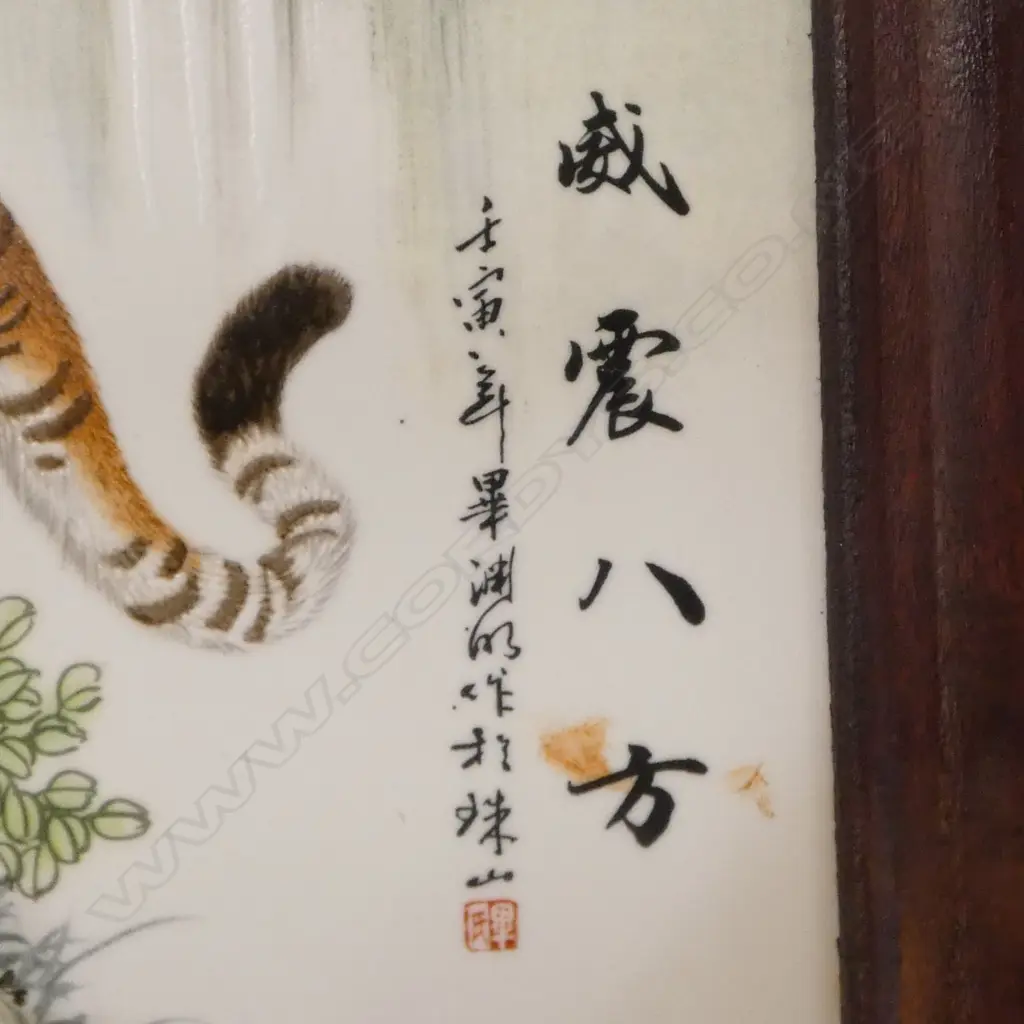 威震八方
壬寅年畢渊明作於珠山
畢氏
WWW.CORDYS.CO.NZ